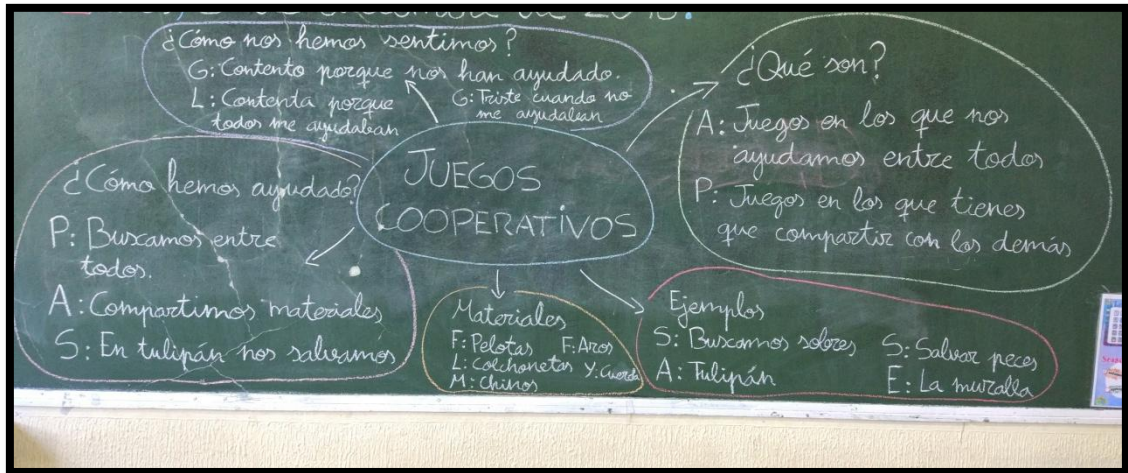 ¿Cómo nos hemos sentimos?
G: Contento porque nos han ayudado.
L: Contenta porque
todos me ayudaban
G: Triste cuando no
me ayudaban
¿Qué son?
A: Juegos en los que nos
ayudamos entre todos
P: Juegos en los que tienes
que compartir con los demás
JUEGOS
COOPERATIVOS
¿Cómo hemos ayudado?
P: Buscamos entre
todos.
A: Compartimos materiales
S: En tulipán nos salvamos
Materiales
F: Pelotas F: Aros
L: Colchonetas Y: Cuerda
M: Chinos
Ejemplos
S: Buscamos sobres
A: Tulipán
S: Salvar peces
E: La muralla